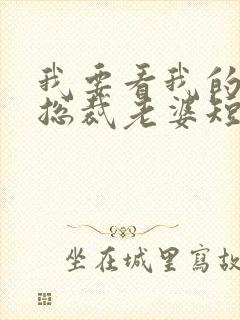 我要看我的
总裁老婆短
坐在城里寫故